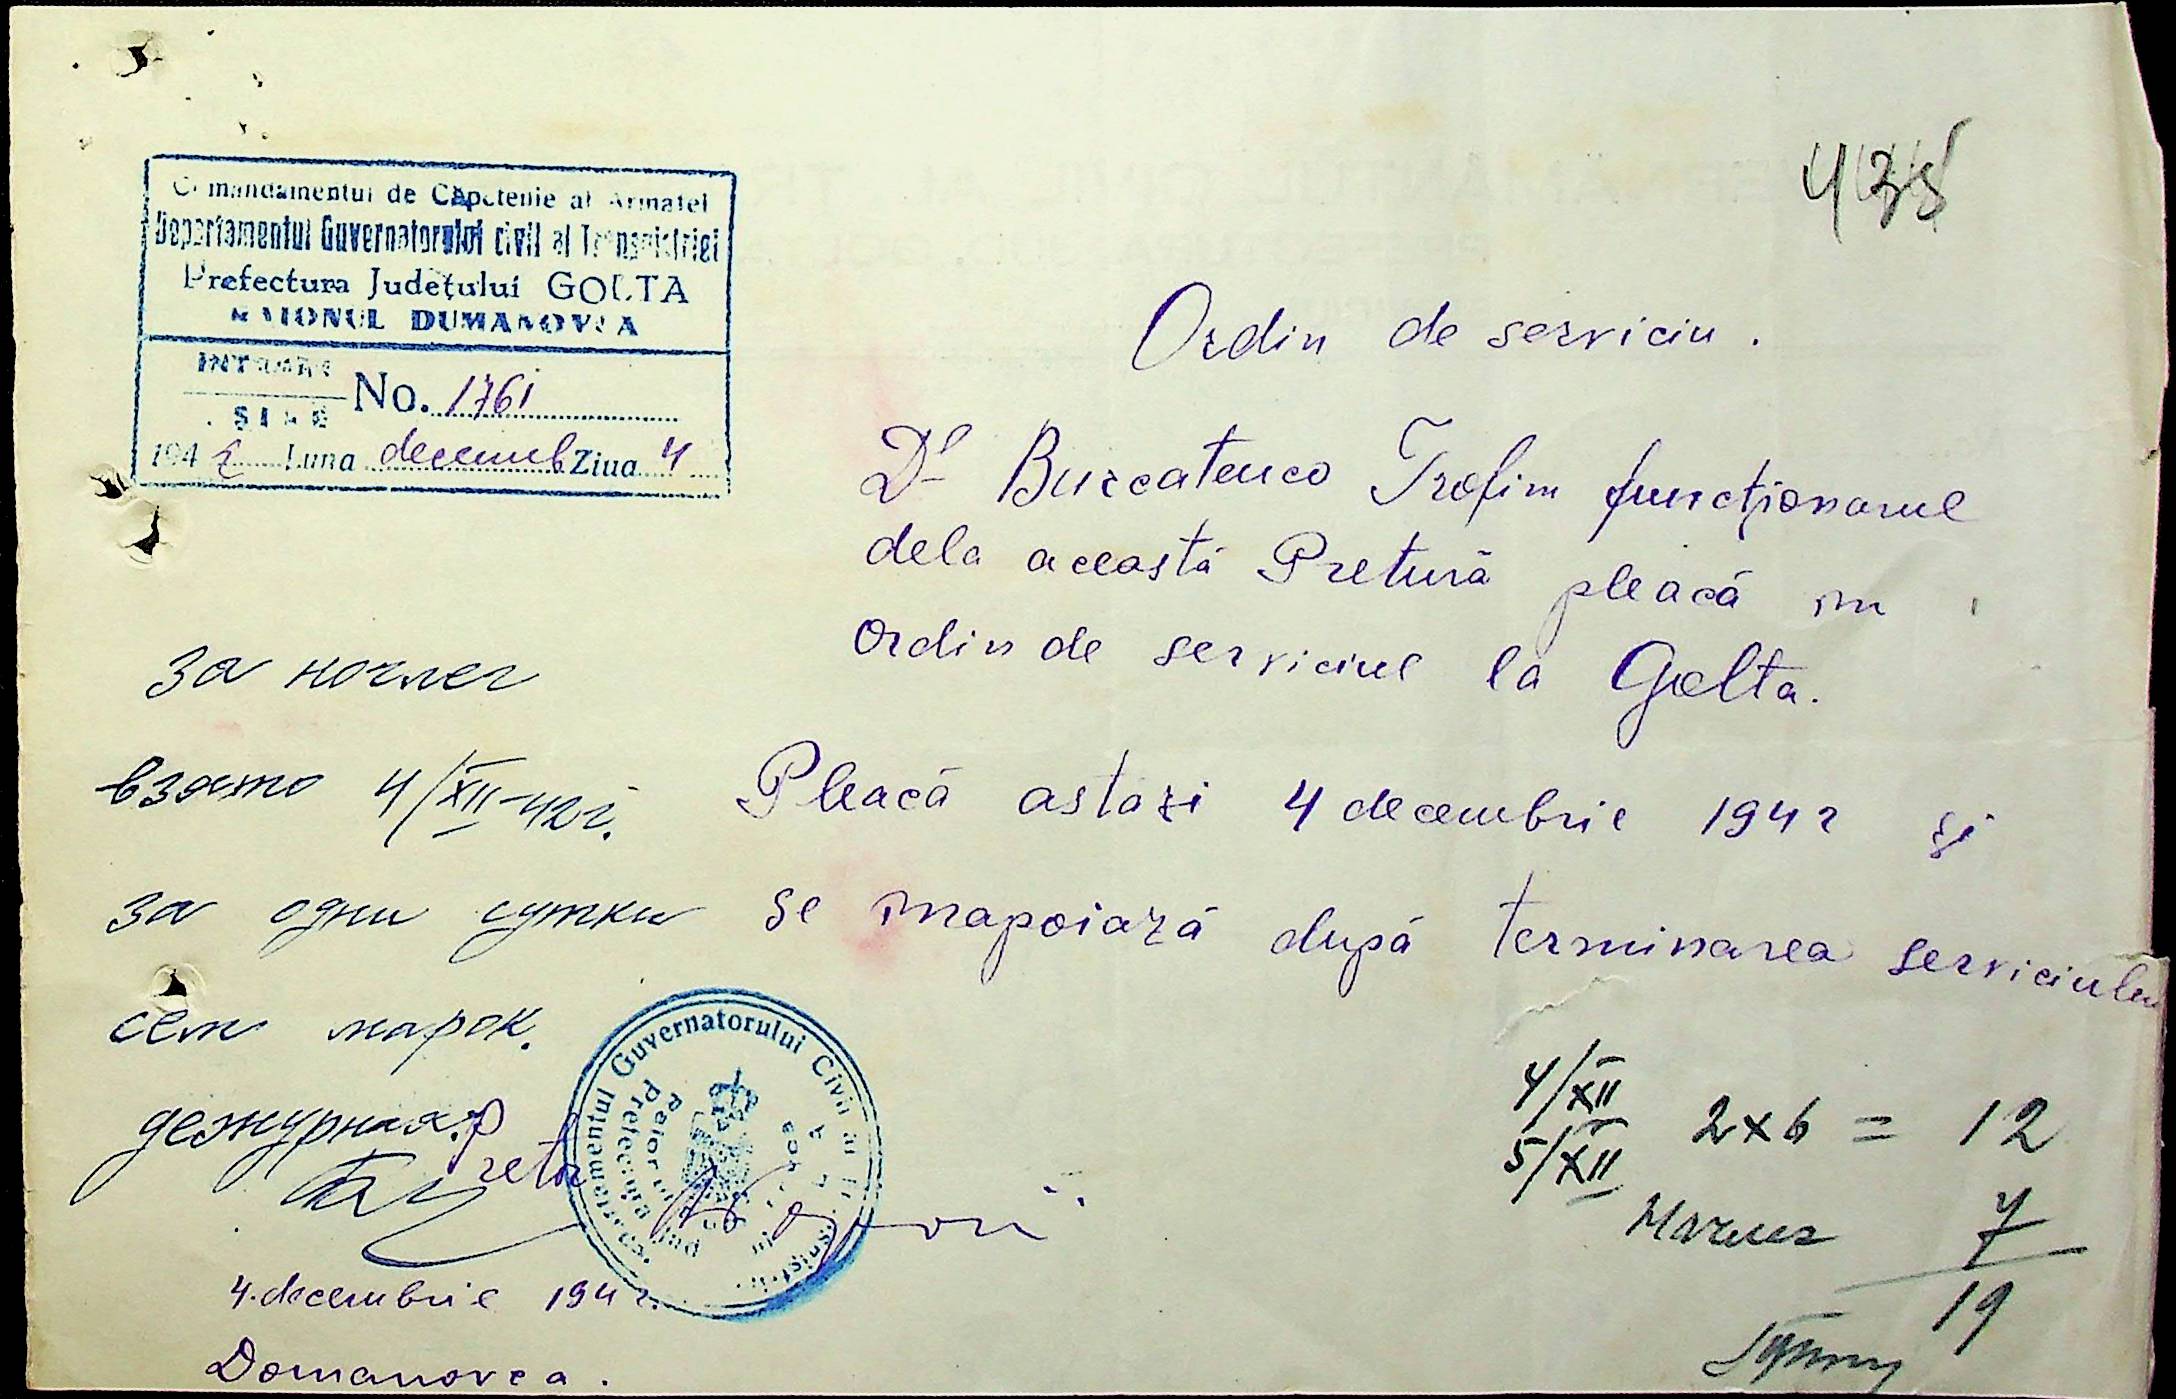 435
Comandamentul de Căpetenie al Armatei
Departamentul Guvernatorului civil al Transnistriei
Prefectura Județului GOLTA
RAIONUL DUMANOVCA
INTRARE
No. 1761
IEȘIRE
1942 Luna decemb Ziua 4
Ordin de serviciu.
Dl Burcatenco Trofim funcționarul
dela această Pretură pleacă în
ordin de serviciul la Golta.
Pleacă astazi 4 decembrie 1942 și
se înapoiază după terminarea serviciului
за ночлег
взято 4/XII-42г.
за одни сутки
сем марок.
дежурная.
Pretor
Departamentul Guvernatorului Civil al Transnistriei
4/XII
5/XII 2x6 = 12
Ночлег 7
19
4. decembrie 1942.
Domanovca.